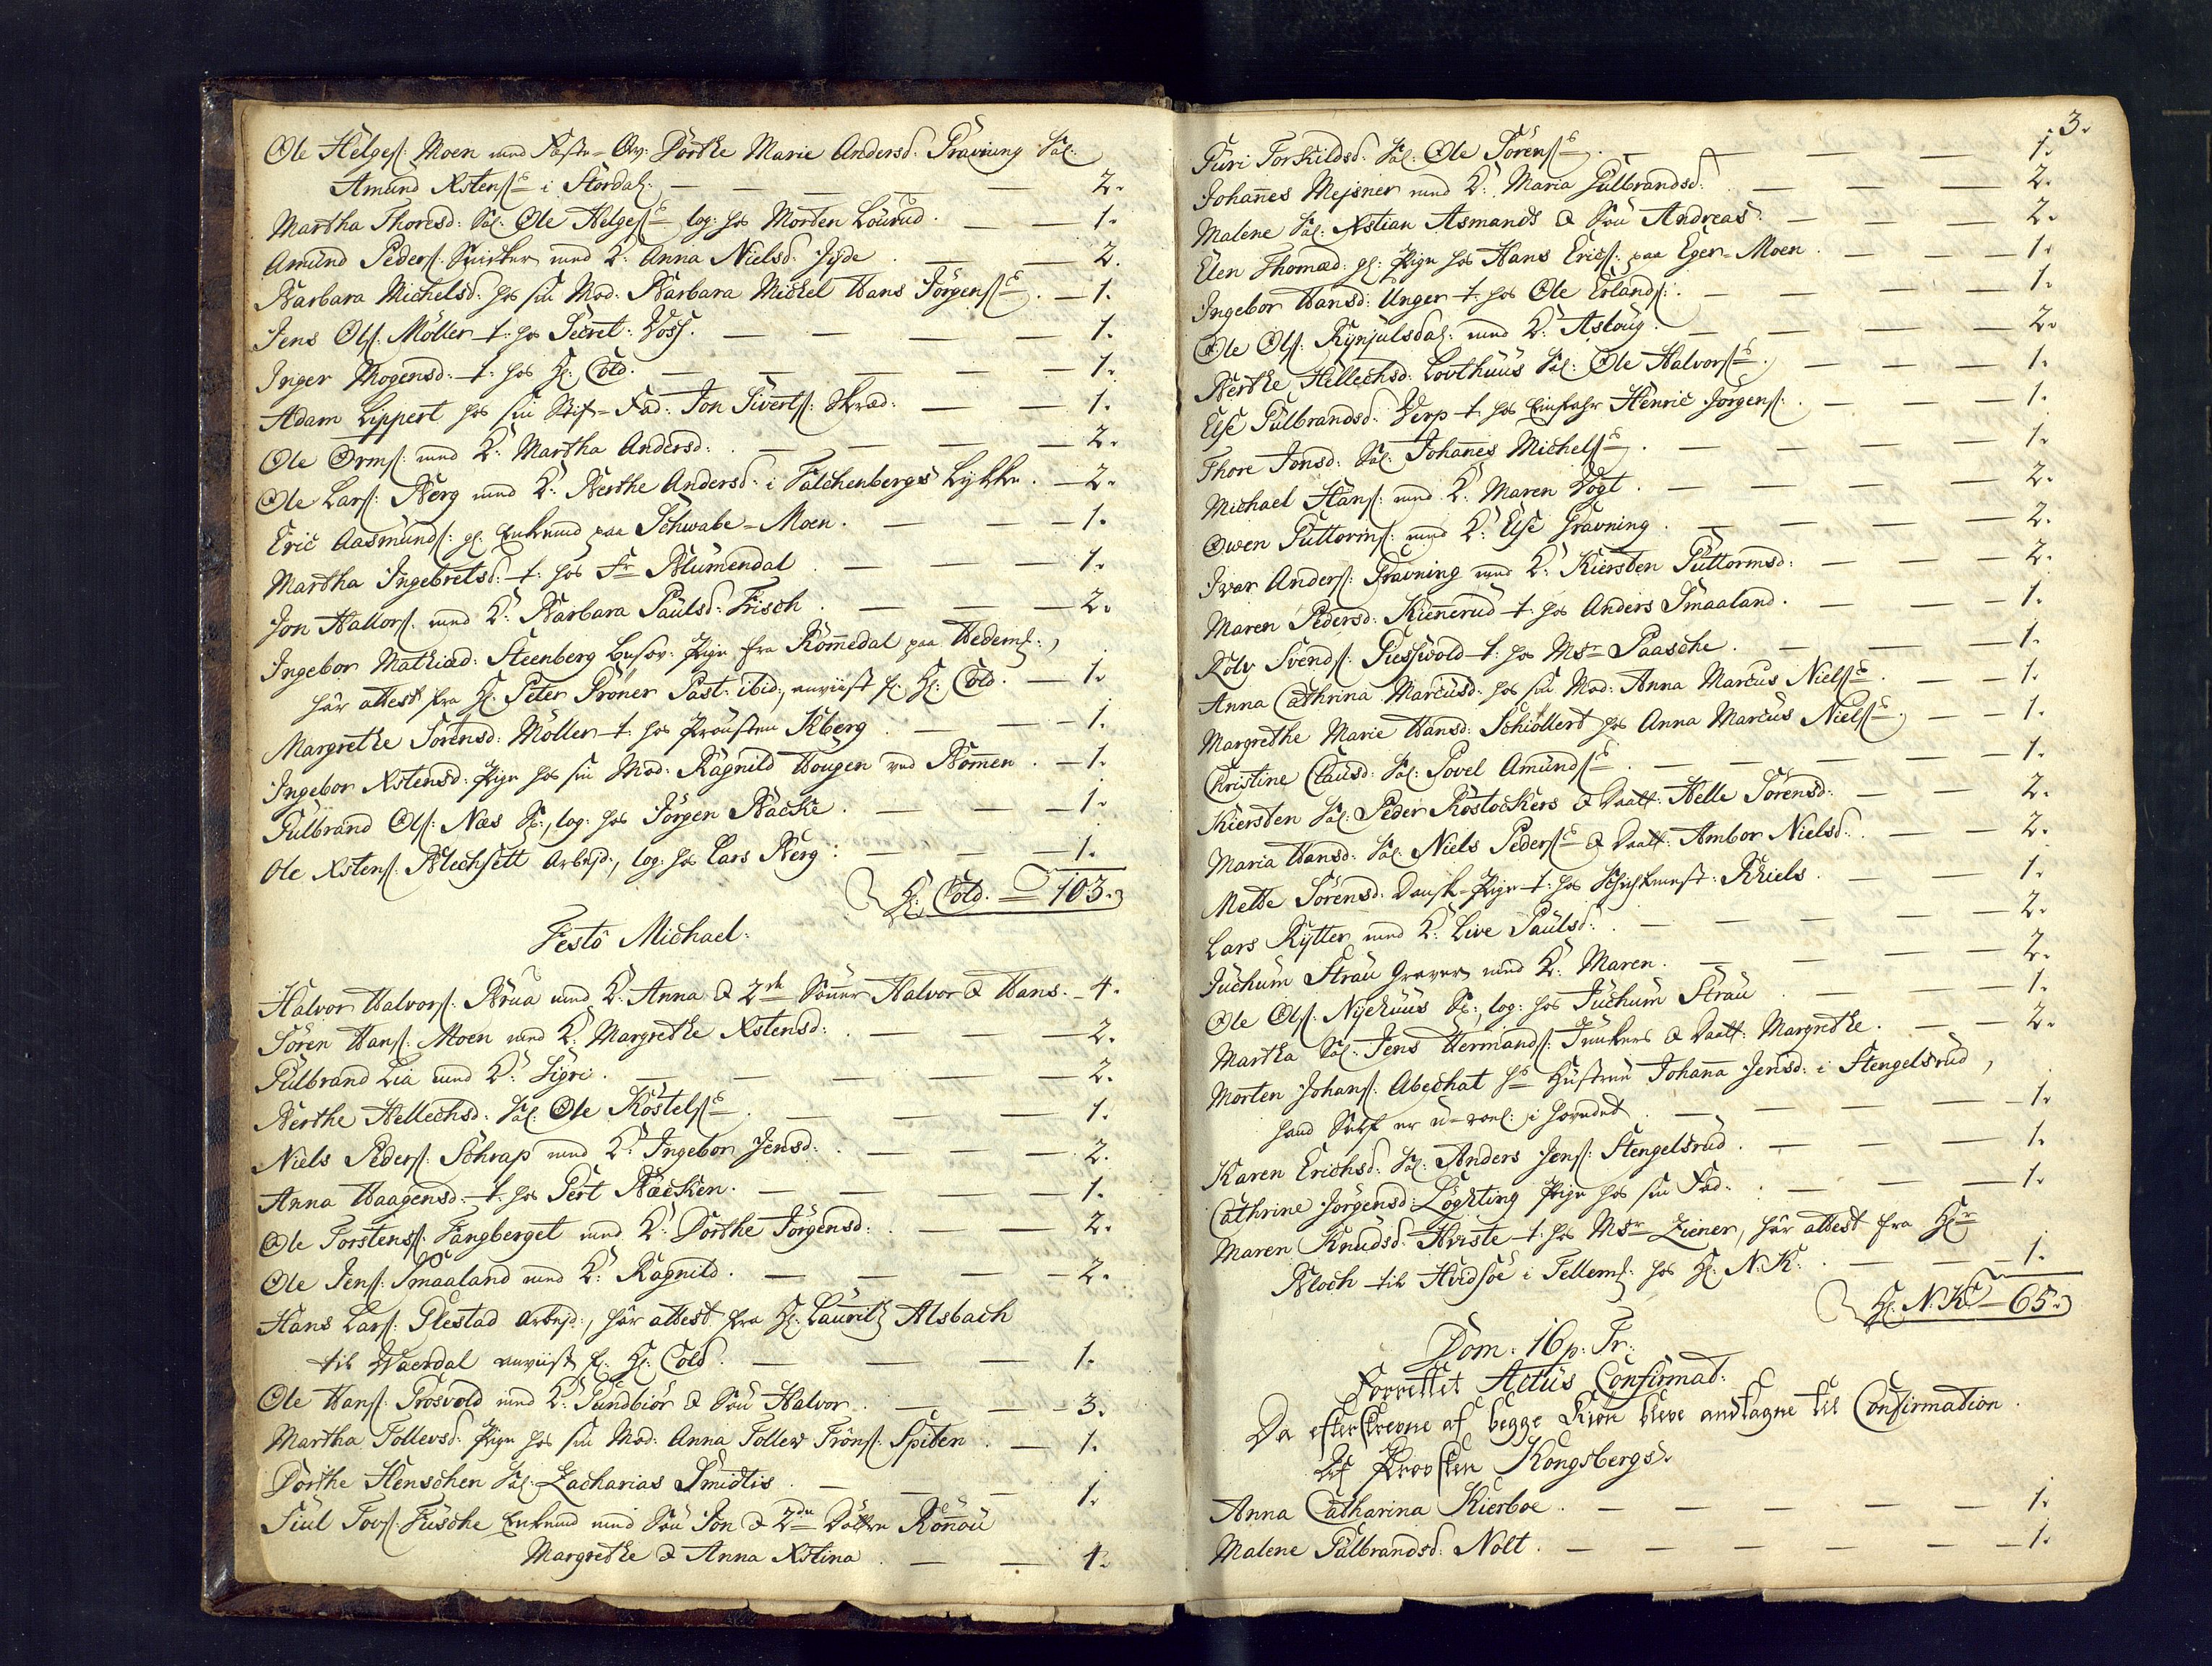 Ole Helgeſ: Moen med Fæste-Qv: Dorthe Marie Andersd: Gravning Sal:
Amund Xstenſens i Stordal: — 2.
Martha Thoresd: Sal: Ole Helgeſens log: hos Morten Lourud. — 1.
Amund Pederſ: Snidker med K: Anna Nielsd: Jyde. — 2.
Barbara Michelsd: hos sin Mod: Barbara Michel Hans Jörgenſens. — 1.
Jens Olſ: Möller t: hos Secret: Voss. — 1.
Inger Mogensd: t: hos H: Cold. — 1.
Adam Lippert hos sin Stif-Fad: Jon Sivertſ: Skræd: — 1.
Ole Ormſ: med K: Martha Andersd: — 2.
Ole Larſ: Berg med K: Berthe Andersd: i Falchenbergs Lykke. — 2.
Eric Aasmundſ: gl: Enkemd paa Schwabe-Moen. — 1.
Martha Ingebretsd: t: hos Fr Blumendal. — 1.
Jon Hallorſ: med K: Barbara Paulsd: Frisch. — 2.
Ingebor Mathiæd: Steenberg Besov: Pige fra Rommedal paa Hedem:,
har attest fra H: Peter Pröner Past: ibid:, anviist f: H: Cold. — 1.
Margrethe Sörensd: Möller t: hos Provsten Kberg. — 1.
Ingebor Xstensd: Pige hos sin Mod: Ragnild Hougen ved Bommen. — 1.
Gulbrand Olſ: Næs S:, log: hos Jörgen Backe. — 1.
Ole Xstenſ: Blechsett Arbejd:, log: hos Lars Berg: — 1.
H: Cold. — 103.
Festo Michael:
Halvor Halvorſ: Brua med K: Anna & 2de Sönner Halvor & Hans. — 4.
Sören Hansſ: Moen med K: Margrethe Xstensd: — 2.
Gulbrand Lia med K: Sigri. — 2.
Berthe Hellechsd: Sal: Ole Kostelſens. — 1.
Niels Pederſ: Schrap med K: Ingebor Jensd: — 2.
Anna Haagensd: t: hos Gert Bæcken. — 1.
Ole Torstensſ: Fangberget med K: Dorthe Jörgensd: — 2.
Ole Jenſ: Smaaland med K: Ragnild. — 2.
Hans Larſ: Plestad Arbejd:, har attest fra H: Lauritz Alsbach
til Waerdal anviist f: H: Cold. — 1.
Ole Hansſ: Grosvold med K: Gundbiör & Sön Halvor. — 3.
Martha Tollevsd: Pige hos sin Mod: Anna Tollev Trönſ: Spiten. — 1.
Dorthe Henschen Sal: Zacharias Smidtis. — 1.
Siul Tovſ: Fusche Enkemd med Sön Jon & 2de Döttre Ronnou
Margrethe & Anna Xstina. — 4.
3.
Guri Torkildsd: Sal: Ole Sörenſens. — 1.
Johannes Mejsner med K: Maria Gulbrandsd: — 2.
Malene Sal: Xstian Asmands & Sön Andreas. — 2.
Elen Thomæd: gl: Pige hos Hans Ericſ: paa Eger-Moen. — 1.
Ingebor Hansd: Unger t: hos Ole Erlandſ: — 1.
Ole Olſ: Rynjulsdal: med K: Aslaug. — 2.
Berthe Hellechsd: Lovthuus Sal: Ole Halvorſens. — 1.
Else Gulbrandsd: Verp t: hos Einfahr Henric Jörgenſ: — 1.
Thore Jonsd: Sal: Johanes Michelſens. — 1.
Michael Hansſ: med K: Maren Vogt. — 2.
Owen Guttormſ: med K: Else Gravning. — 2.
Iver Anderſ: Gravning med K: Kiersten Guttormsd: — 2.
Maren Pedersd: Kiennerud t: hos Anders Smaaland. — 1.
Rolv Svendſ: Giesswold t: hos Msr Paasche. — 1.
Anna Cathrina Marcusd: hos sin Mod: Anna Marcus Nielſens. — 1.
Margrethe Marie Hansd: Schiöllert hos Anna Marcus Nielſens. — 1.
Christine Clausd: Sal: Povel Amundſens. — 1.
Kiersten Sal: Peder Rostockers & Daatt: Helle Sörensd: — 2.
Maria Hansd: Sal: Niels Pederſens & Daatt: Ambor Nielsd: — 2.
Mette Sörensd: Dansk-Pige t: hos Schichtmest: Kriels. — 1.
Lars Rytter med K: Live Paulsd: — 2.
Juchum Strau Graver med K: Maren. — 2.
Ole Olſ: Nyehuus S:, log: hos Juchum Strau. — 1.
Martha Sal: Jens Hermandſ: Junkers & Daatt: Margrethe. — 2.
Morten Johansſ: Abechat hs Hustrue Johanna Jensd: i Stengelsrud,
hand Self er u-roel: i Hovedet. — 1.
Karen Erichsd: Sal: Anders Jensſ: Stengelsrud. — 1.
Cathrine Jörgensd: Löghting Pige hos sin Fad: — 1.
Maren Knudsd: Hviste t: hos Msr Ziener, har attest fra Hr
Bloch til Hvidsöe i Tellem: hos H: N. K: — 1.
H: N. K: — 65.
Dom: 16 p: Tr:
Forrettet Actus Confirmat:
Da efterskrevne af begge Kiön bleve antagne til Confirmation.
Af Provsten Kongsbergs.
Anna Catharina Kierboe. — 1.
Malene Gulbrandsd: Nolt. — 1.